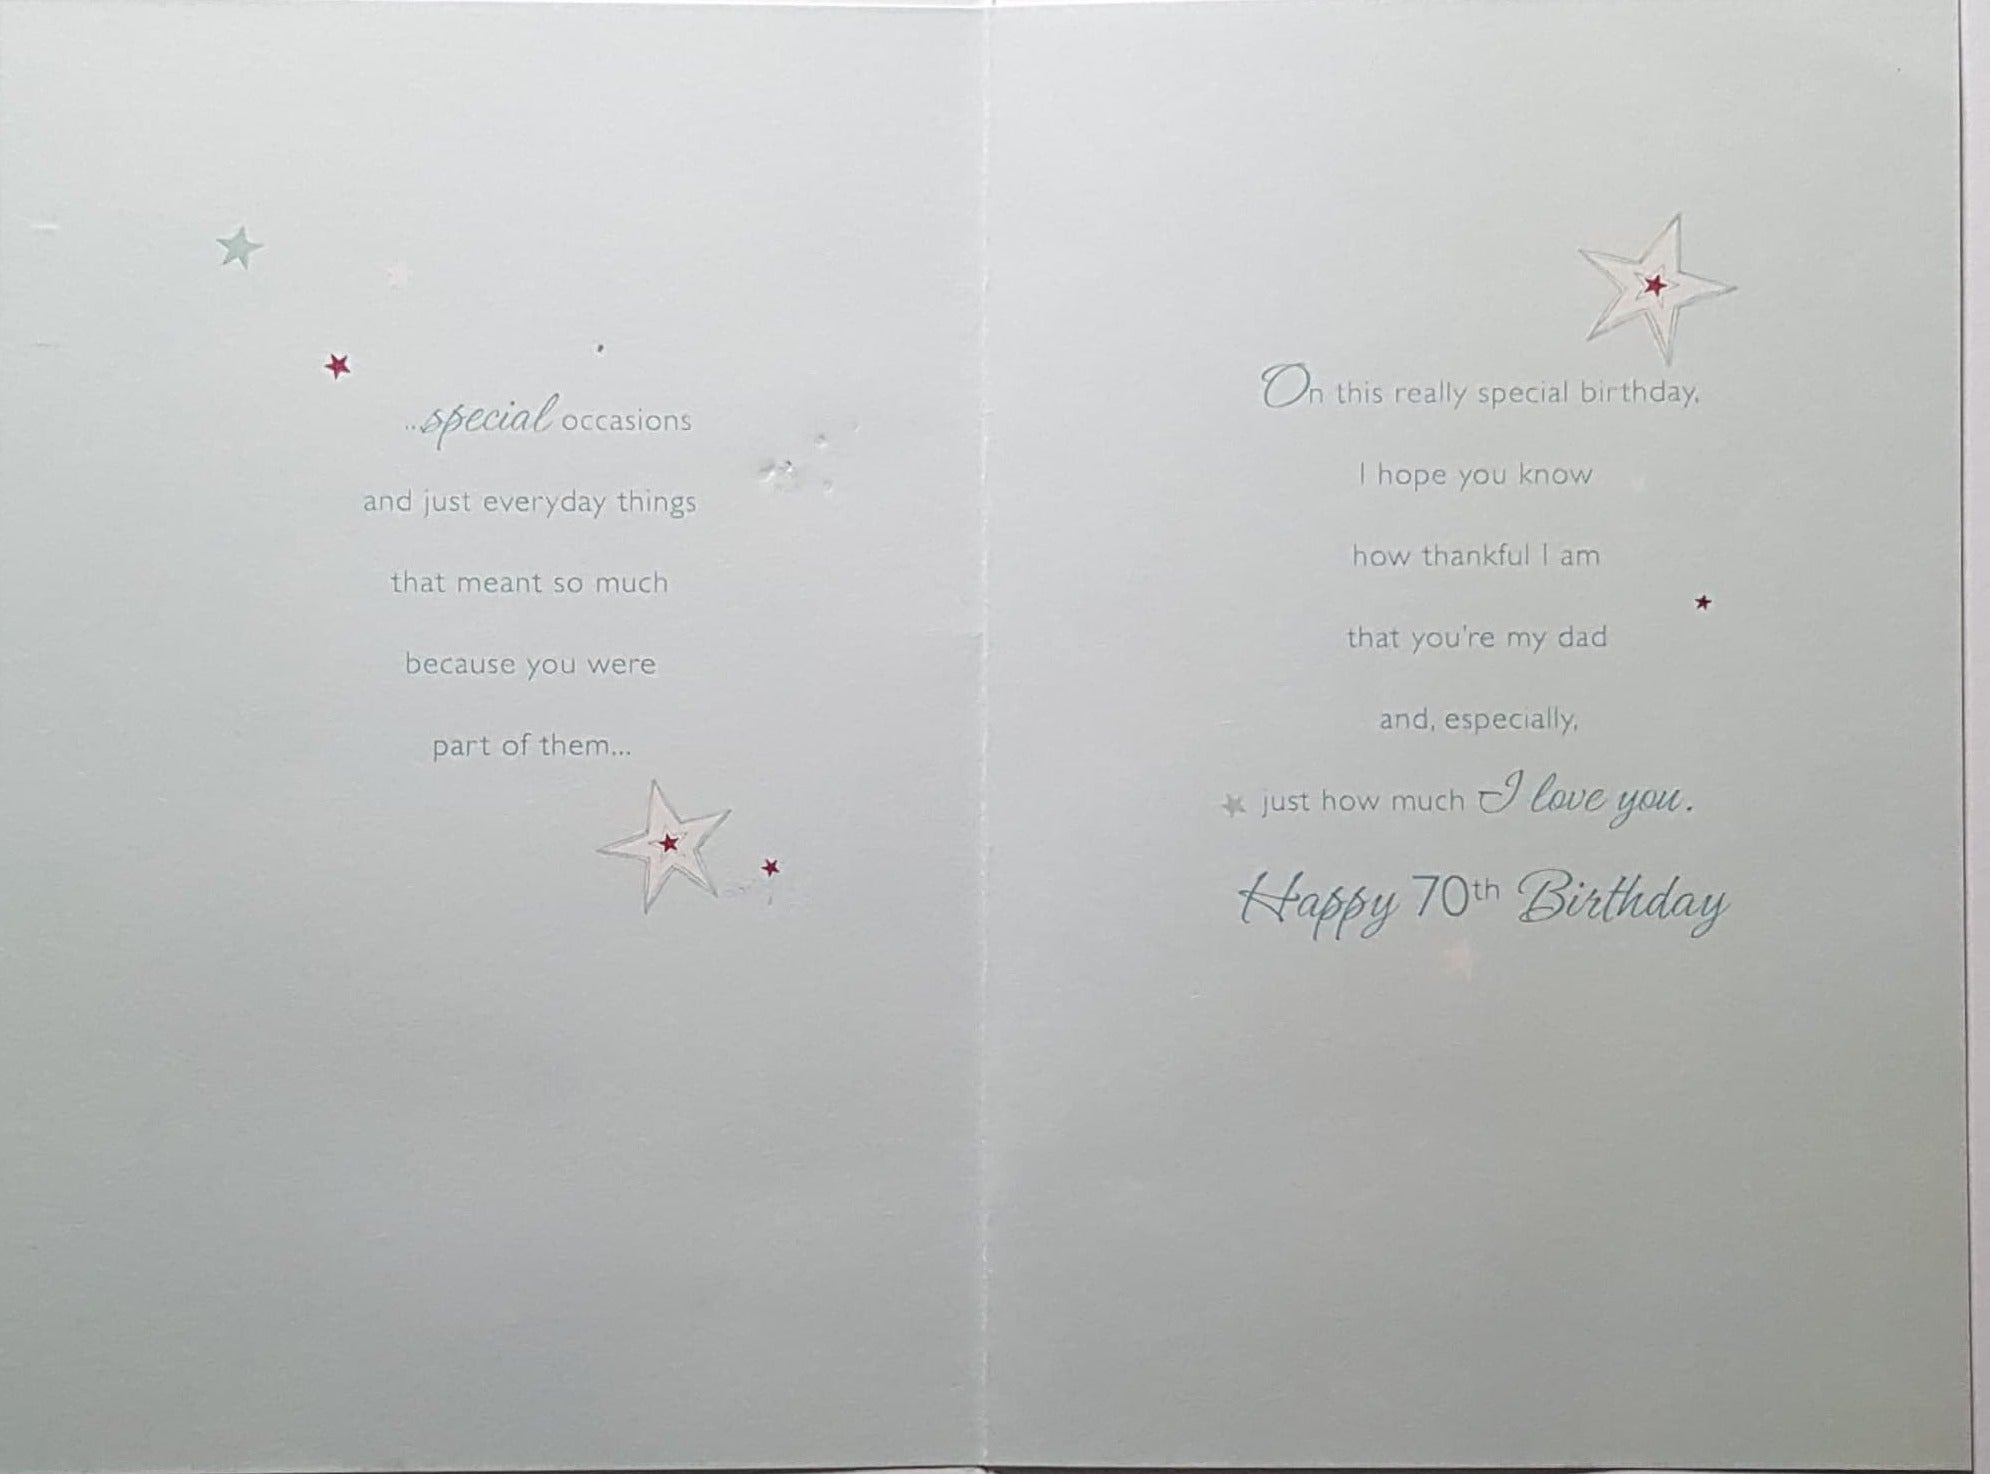 ..special occasions
and just everyday things
that meant so much
because you were
part of them...
On this really special birthday,
I hope you know
how thankful I am
that you're my dad
and, especially,
just how much I love you.
Happy 70th Birthday